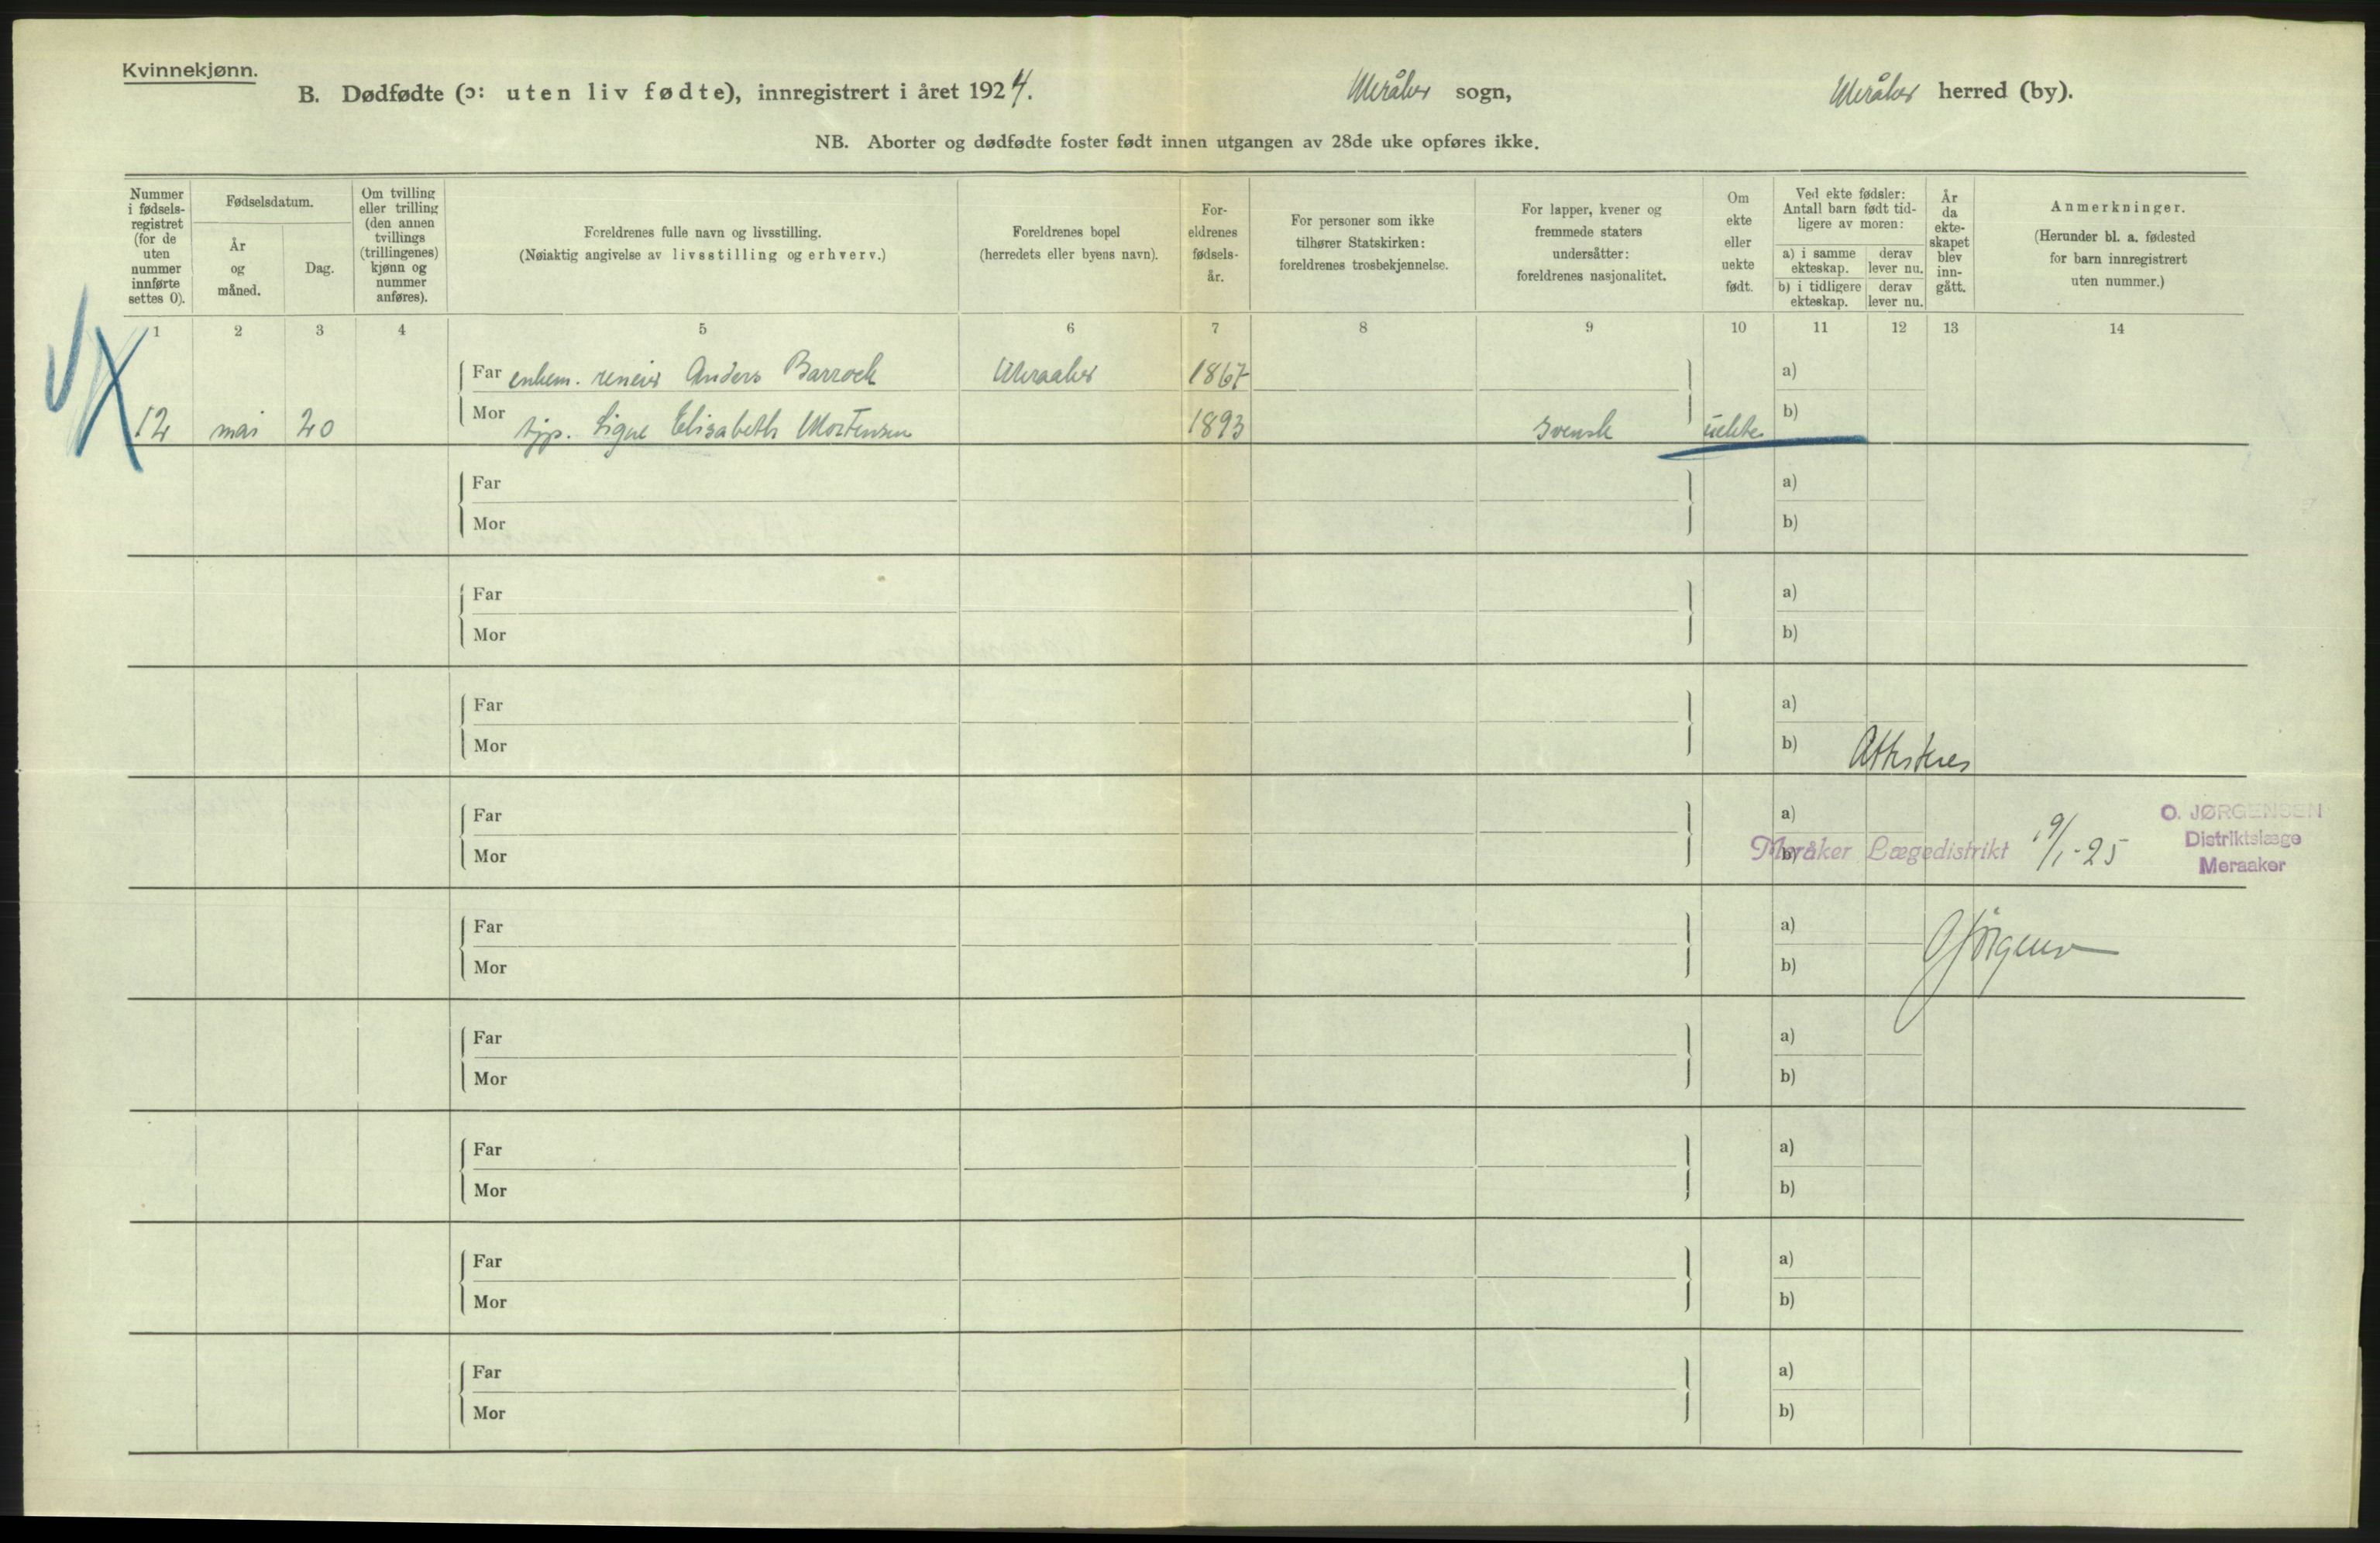 Kvinnekjønn.
B. Dødfødte (ɔ: uten liv fødte), innregistrert i året 1924. Meråker sogn, Meråker herred (by).
NB. Aborter og dødfødte foster født innen utgangen av 28de uke opføres ikke.
Nummer i fødsels-registret (for de uten nummer innførte settes 0).
Fødselsdatum.
År og måned.
Dag.
Om tvilling eller trilling (den annen tvillings (trillingenes) kjønn og nummer anføres).
Foreldrenes fulle navn og livsstilling.
(Nøiaktig angivelse av livsstilling og erhverv.)
Foreldrenes bopel
(herredets eller byens navn).
For-eldrenes fødsels-år.
For personer som ikke tilhører Statskirken: foreldrenes trosbekjennelse.
For lapper, kvener og fremmede staters undersåtter: foreldrenes nasjonalitet.
Om ekte eller uekte født.
Ved ekte fødsler: Antall barn født tid-ligere av moren:
a) i samme ekteskap.
derav lever nu.
b) i tidligere ekteskap.
derav lever nu.
År da ekte-skapet blev inn-gått.
Anmerkninger.
(Herunder bl. a. fødested for barn innregistrert uten nummer.)
1 2 3 4 5 6 7 8 9 10 11 12 13 14
Far enkem. reneier Anders Barrock Meraaker 1867 a)
12 mai 20 Mor tjp. Signe Elisabeth Mortensen 1893 svensk uekte b)
Far a)
Mor b)
Far a)
Mor b)
Far a)
Mor b) Attesteres
Far a)
Mor b) Meråker Lægedistrikt 19/1-25
O. JØRGENSEN
Distriktslæge
Meraaker
Far a)
Mor b)
OJørgensen
Far a)
Mor b)
Far a)
Mor b)
Far a)
Mor b)
Far a)
Mor b)